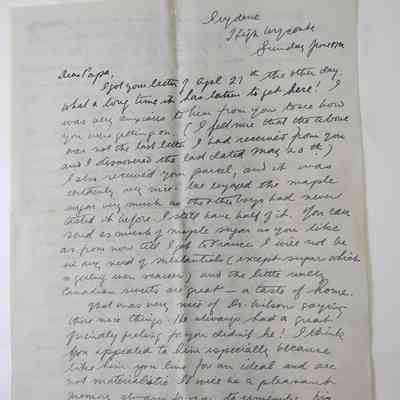 High Wycombe
Sunday June
Dear Papa,
I got your letter of Apl 27th the other day.
What a long time it has taken to get here! I
was very anxious to hear from you & see how
you were getting on. (I find that the above
was not the last letter I had received from you
and I discovered the last dated May 20th)
I also received your parcel, and it was
certainly very nice. We enjoyed the maple
sugar very much as the other boys had never
tasted it before. I still have half of it. You can
send as much of maple sugar as you like
as from now till I get to France I will not be
in any need of (except sugar which
is getting even scarcer) and the little
Canadian sweets are great – a taste of home.
That was very nice of Dr. Wilson saying
those nice things. He always had a great
friendly feeling for you didn't he! I think
you appealed to him especially because
like him you live for an ideal and are
not materialistic. It will be a pleasant
memory always for you to remember his